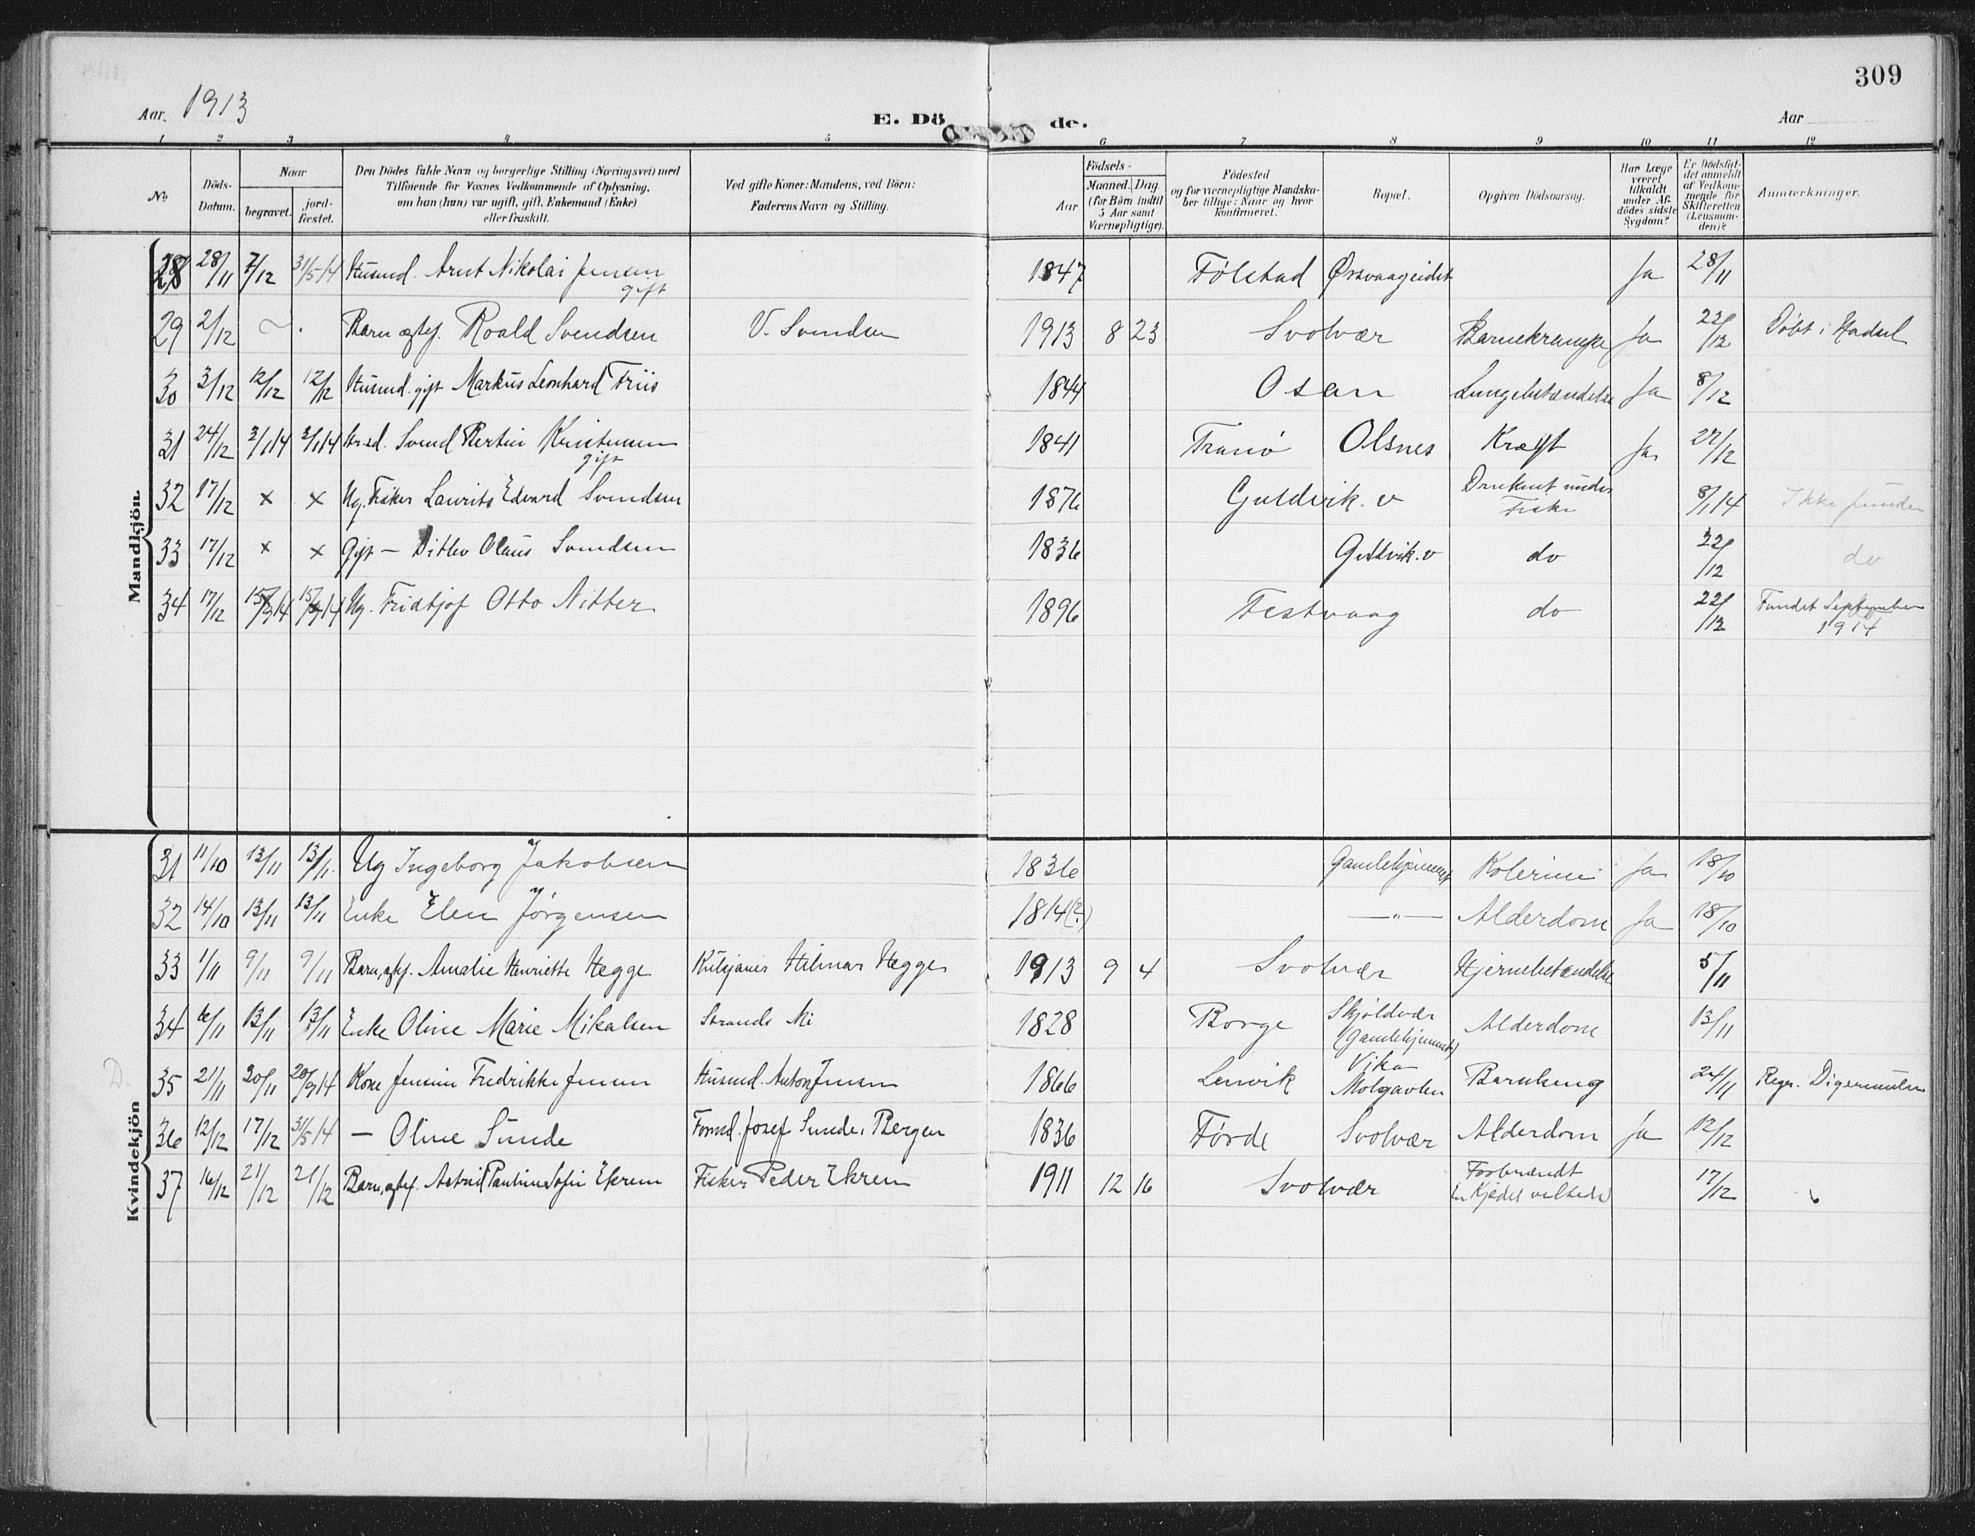 309
Aar 1913 E. Dö de. Aar
1 2 3 4 5 6 7 8 9 10 11 12
No. Döds-Datum. Naar begravet. jord-fæstet. Den Dödes fulde Navn og borgerlige Stilling (Næringsvei) med Tilföiende for Voxnes Vedkommende af Oplysning, om han (hun) var ugift, gift, Enkemand (Enke) eller fraskilt. Ved gifte Koner: Mandens, ved Börn: Faderens Navn og Stilling. Födsels- Aar Maaned. Dag. (for Börn indtil 5 Aar samt Værnepligtige). Födested og for værnepligtige Mandskaber tillige: Naar og hvor konfirmeret. Bopæl. Opgiven Dödsaarsag. Har Læge været tilkaldt under Afdödes sidste Sygdom? Er Dödsfaldet anmeldt af Vedkommende for Skifteretten (Lensmanden)? Anmærkninger.
Mandkjön.
28 28/11 7/12 31/5 14 Husmd. Arnt Nikolai Jensen gift 1847 Fölstad Örsvaageidet Ja 28/11
29 2/12 Barn ægtef. Roald Svendsen V. Svendsen 1913 8 23 Svolvær Barnekrampe Ja 22/12 Döbt i Hadsel
30 3/12 12/12 12/12 Husmd. gift Markus Leonhard Friis 1844 Osan Lungebetændelse Ja 8/12
31 24/12 3/1 14 3/1 14 Svend Bertin Kristensen gift 1841 Tranö Olsnes Kræft Ja 27/12
32 17/12 × × Ug. Fisker Laurits Edvard Svendsen 1876 Guldvik. v Druknet under Fiske 8/1 14 Ikke funden
33 17/12 × × Gift — Ditlev Olaus Svendsen 1836 Guldvik. v do 22/12 do
34 17/12 15/9 14 15/9 14 Ug. Fridtjof Otto Nitter 1896 Festvaag do 22/12 Fundet September 1914
Kvindekjön
31 11/10 13/11 13/11. Ug Ingeborg Jakobsen 1836 Gamlehjemmet Kolerine Ja 18/10
32 14/10 13/11 13/11 Enke Elen Jørgensen 1814(?) —"— Alderdom Ja 18/10
33 1/11 9/11 9/11 Barn, ægtef. Amalie Henriette Hegge Hilmar Hegge 1913 9 4 Svolvær Hjernebetændelse 5/11
34 6/11 13/11 13/11 Enke Oline Marie Mikalsen Strands Mi 1828 Borge Skjoldvær (Gamlehjemmet) Alderdom 13/11
D. 35 21/11 20/11 20/9 14 Kone Jensine Fredrikke Jensen Husmd. Anton Jensen 1866 Lenvik Vika Molgavlen Barnseng 24/11 Regr. Digermulen
36 12/12 17/12 31/5 14 — Oline Sunde Formd. Josef Sunde, Bergen 1836 Førde Svolvær Alderdom Ja 12/12
37 16/12 21/12 21/12 Barn, ægtef. Astrid Pauline Sofie Ekrem Fisker Peder Ekrem 1911 12 16 Svolvær Forbrændt (en Kjedel veltede) 17/12